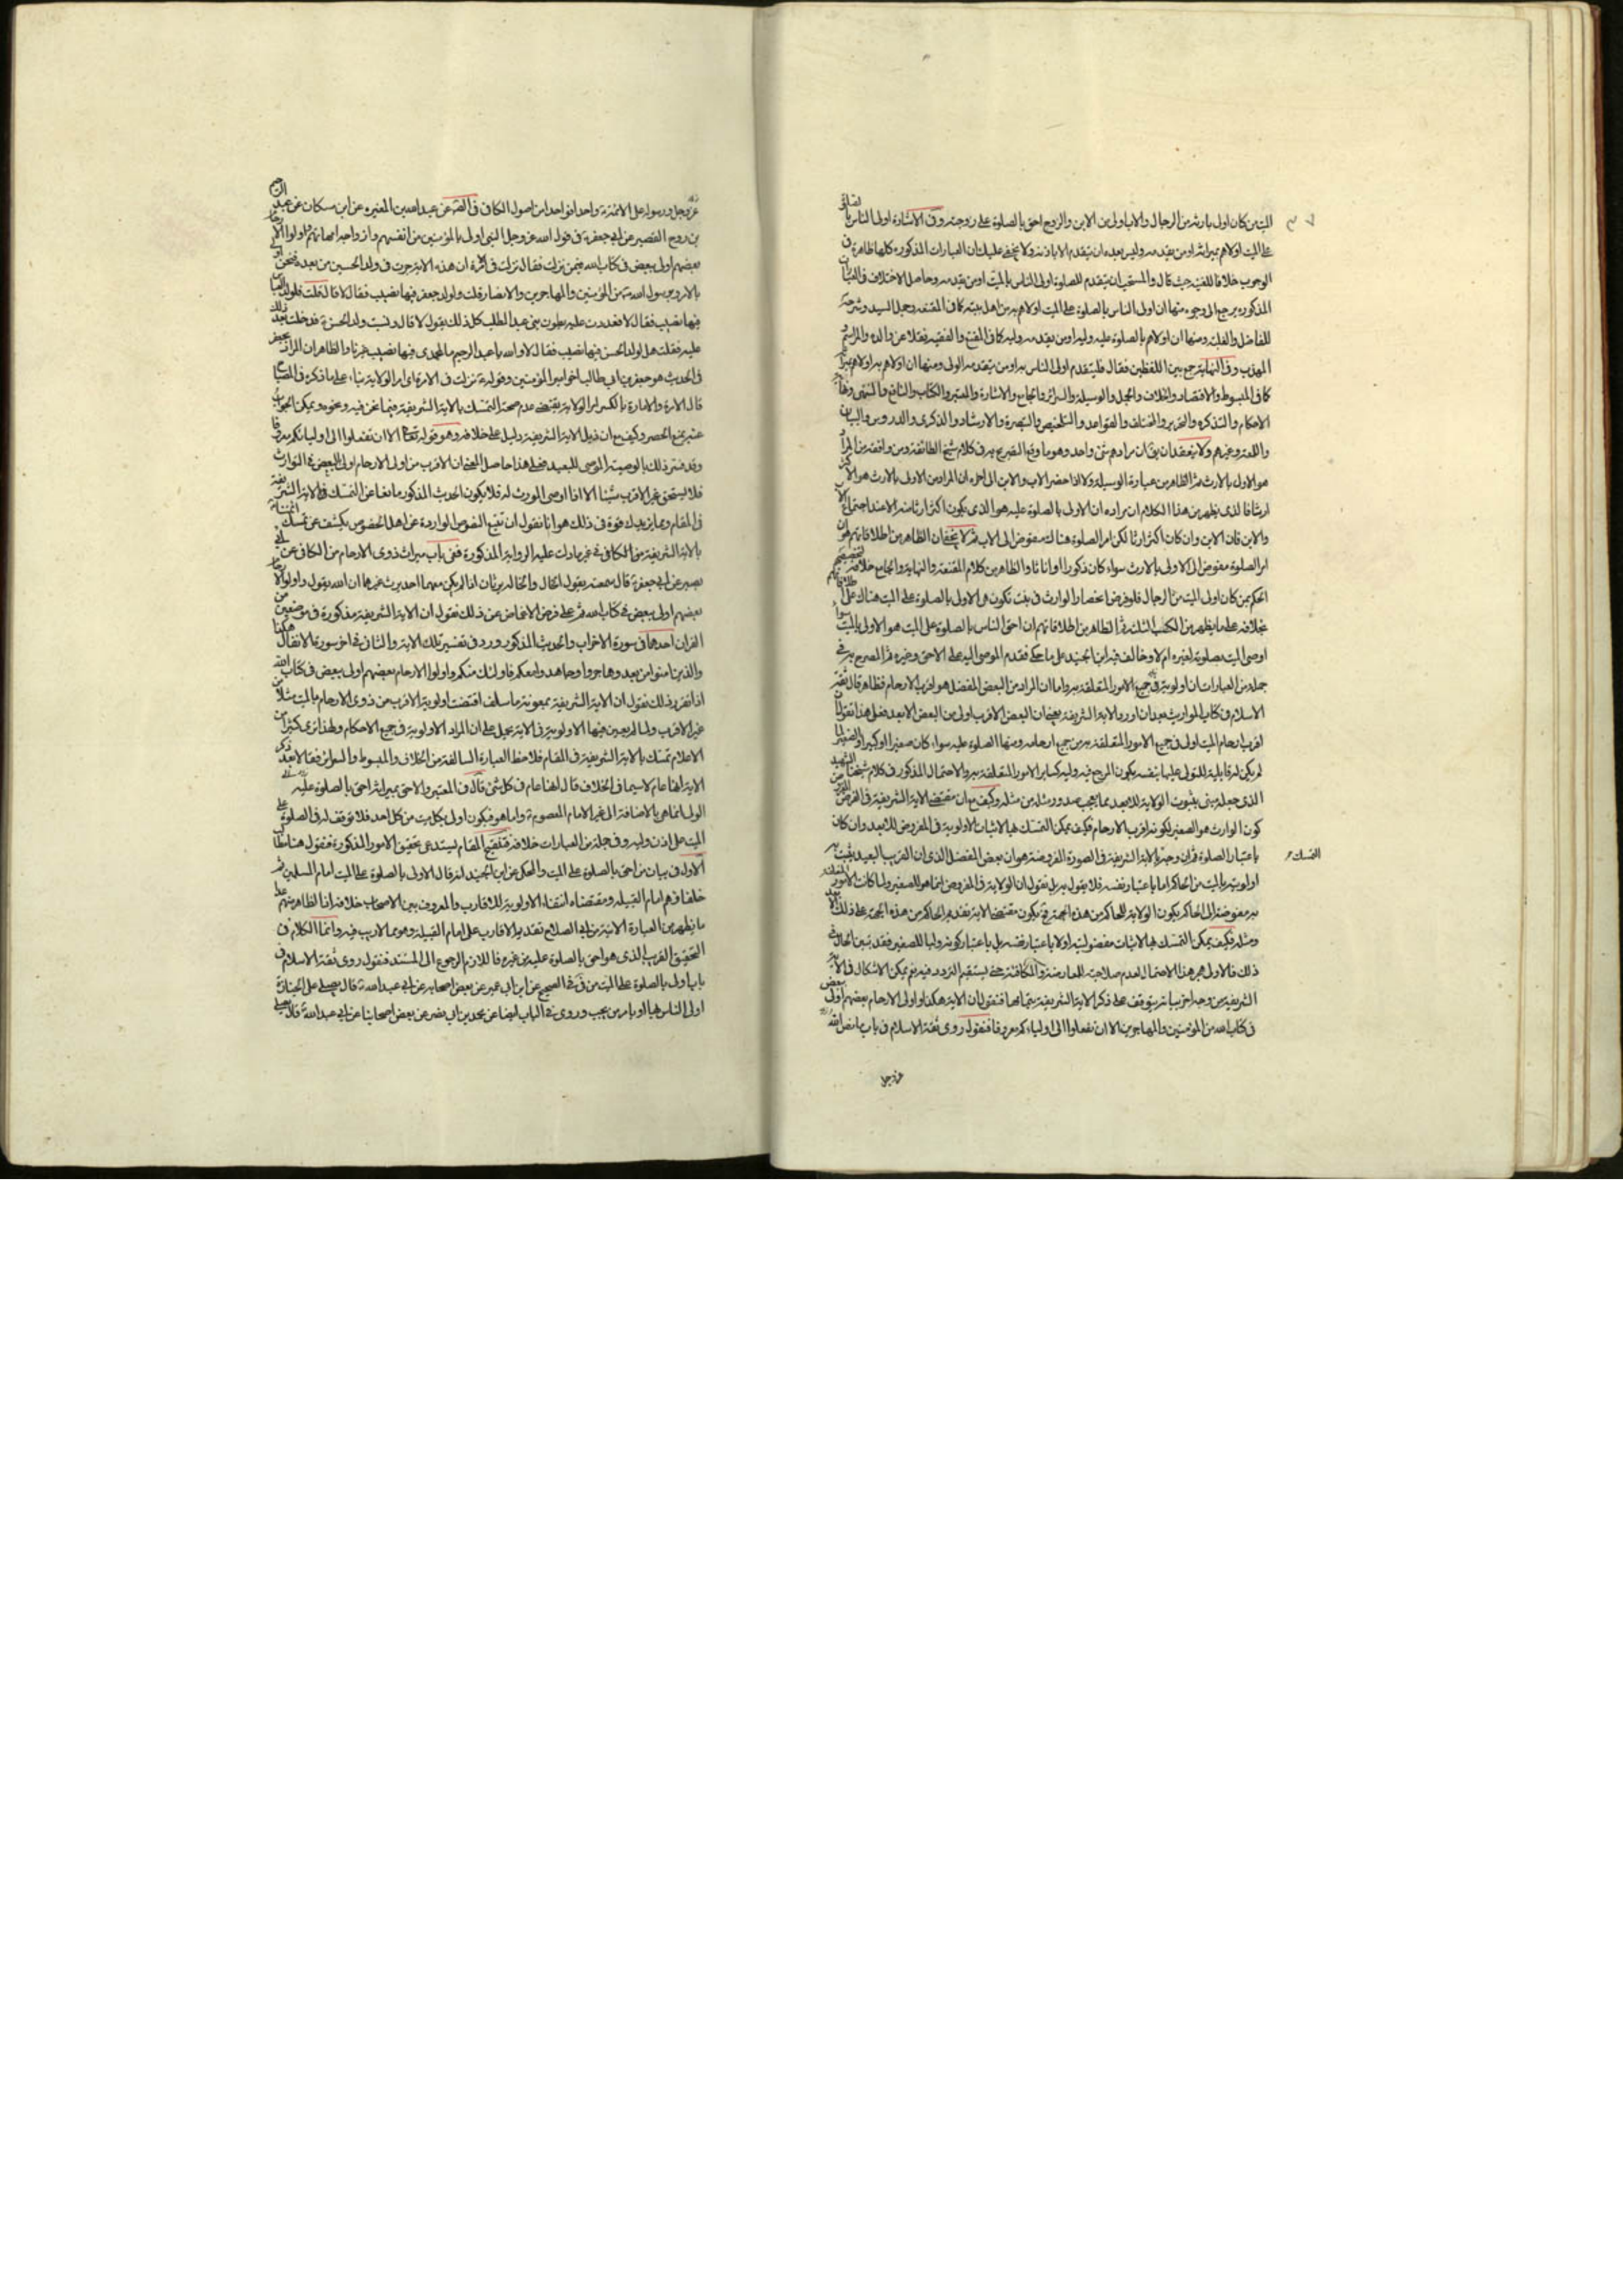 الميت من كان اولى بارثه من الرجال والاب اولى من الابن والزوج احق بالصلوة على زوجته وفى الاشارة اولى الناس بالصلوة
على الميت اولاهم بميراثه او من يقدمه وليس لاحد ان يتقدم الا باذنه ولا يخفى عليك ان العبارات المذكورة كلها ظاهرة فى
الوجوب خلافا للغنية حيث قال والمستحب ان يتقدم للصلوة اولى الناس بالميت او من يقدمه وحاصل الاختلاف فى العبارات
المذكورة يرجع الى وجوه منها ان اولى الناس بالصلوة على الميت اولاهم به من اهل بيته كما فى المقنعة وجمل السيد وشرحه
للقاضى والفقيه ومنها ان اولاهم بالصلوة عليه وليه او من يقدمه وليه كما فى المقنع والفقيه نقلا عن والده والمراسم
المهذب وفى النهاية جمع بين اللفظين فقال فليتقدم اولى الناس به او من يتقدمه الولى ومنها ان اولاهم به اولاهم بميراثه
كما فى المبسوط والاقتصاد والخلاف والجمل والوسيلة والسرائر والجامع والاشارة والمعتبر والكتاب والنافع والمنتهى ونهاية
الاحكام والتذكرة والتحرير والمختلف والقواعد والتلخيص والتبصرة والارشاد والذكرى والدروس والبيان
واللمعة وغيرهم ولا يبعد ان يقال ان مرادهم شئ واحد وهو ما وقع التصريح به فى كلام شيخ الطائفة ومن وافقه من المراد
هو الاولى بالارث ثم الظاهر من عبارة الوسيلة ولا اذا حضر الاب والابن الى اخره ان المراد من الاولى بالارث هو الاكثر
ارثا فالذى يظهر من هذا الكلام ان مراده ان الاولى بالصلوة عليه هو الذى يكون اكثر ارثا منه الا عند اجتماع الاب
والابن فان الابن وان كان اكثر ارثا لكن امر الصلوة هناك مفوض الى الاب ثم لا يخفى ان الظاهر من اطلاقاتهم هو ان
امر الصلوة مفوض الى الاولى بالارث سواء كان ذكورا او اناثا والظاهر من كلام المقنعة والنهاية والجامع خلافه لتخصيصهم
الحكم بمن كان اولى الميت من الرجال فلو فرض انحصار الوارث فى بنت تكون هى الاولى بالصلوة على الميت هناك على اطلاقاتهم
بخلافه على ما يظهر من الكتب الثلثة ثم الظاهر من اطلاقاتهم ان احق الناس بالصلوة على الميت هو الاولى بالميت سواء
اوصى الميت بصلوة لغيره ام لا وخالف فيه ابن الجنيد على ما حكى فقدم الموصى اليه على الاحق وغيره ثم المصرح به فى
جملة من العبارات ان اولويته فى جميع الامور المتعلقة به واما ان المراد من البعض المفضل هو اقرب الارحام فظاهر قال ثقة
الاسلام فى كتاب المواريث بعد ان اورد الاية الشريفة يعنى ان البعض الاقرب اولى من البعض الابعد فعلى هذا نقول ان
اقرب ارحام الميت اولى فى جميع الامور المتعلقة به من جميع ارحامه ومنها الصلوة عليه سواء كان صغيرا او كبيرا والصغير لما
لم يكن له قابلية للتولى عليها بنفسه يكون المرجع فيه وليه كساير الامور المتعلقة به والاحتمال المذكور فى كلام شيخنا الشهيد
الذى جعله يبنى بثبوت الولاية للابعد مما يعجب صدوره مثله من مثله وكيف مع ان مقتضى الاية الشريفة فى الفرض من
كون الوارث هو الصغير لكونه اقرب الارحام فكيف يمكن التمسك بها لاثبات الاولوية فى المفروض للابعد وان كان
التمسك م
باعتبار الصلوة فان وجه بالاية الشريفة فى الصورة المفروضة هو ان بعض المفضل الذى ان القريب البعيد يثبت
اولويته بالميت من الحاكم اما باعتبار نفسه فلا يقول به بل نقول ان الولاية فى المفروض انما هو للصغير ولما كانت الامور المتعلقة
به مفوضة الى الحاكم يكون الولاية للحاكم من هذه الجهة فيكون مقتضى الاية تقديم الحاكم من هذه الجهة على ذلك
ومثله فكيف يمكن التمسك بها لاثبات مفضوليته اولا باعتبار نفسه بل باعتبار كونه وليا للصغير فقد تبين الحال فى
ذلك فالاولى هجر هذا الاحتمال لعدم صلاحيته للمعارضة والمكافئة حتى يستقيم التردد فيه نعم يمكن الاشكال فى الاية
الشريفة من وجه اخر بيانه يتوقف على ذكر الاية الشريفة بتمامها فنقول ان الاية هكذا واولى الارحام بعضهم اولى ببعض
فى كتاب الله من المؤمنين والمهاجرين الا ان تفعلوا الى اوليائكم معروفا فنقول روى ثقة الاسلام فى باب ما نص الله
عز وجل
عز وجل ورسوله على الائمة واحدا فواحدا من اصول الكافى فى الصحيح عن عبد الله بن المغيرة عن ابن مسكان عن عبد الرحيم
بن روح القصير عن ابى جعفر ع فى قول الله عز وجل النبى اولى بالمؤمنين من انفسهم وازواجه امهاتهم واولوا الارحام
بعضهم اولى ببعض فى كتاب الله فيمن نزلت فقال نزلت فى الامرة ان هذه الاية جرت فى ولد الحسين من بعده فنحن اولى
بالامر وبرسول الله ص من المؤمنين والمهاجرين والانصار قلت ولولد جعفر فيها نصيب فقال لا قال قلت فلولد العباس
فيها نصيب فقال لا فعددت عليه بطون بنى عبد المطلب كل ذلك يقول لا قال ونسيت ولد الحسن ع فدخلت بعد ذلك
عليه فقلت هل لولد الحسن فيها نصيب فقال لا والله يا عبد الرحيم ما لمحمدى فيها نصيب غيرنا والظاهر ان المراد بجعفر
فى الحديث هو جعفر بن ابى طالب اخو امير المؤمنين وقوله ع نزلت فى الامرة اى امر الولاية بناء على ما ذكره فى المصباح
قال الامرة والامارة بالكسر امر الولاية يقتضى عدم صحة التمسك بالاية الشريفة فيما نحن فيه ونحوه ويمكن الجواب
عنه بمنع الحصر وكيف مع ان ذيل الاية الشريفة دليل على خلافه وهو قوله تعالى الا ان تفعلوا الى اوليائكم معروفا
وقد فسر ذلك بالوصية الموصى للبعيد فعلى هذا حاصل المعنى ان الاقرب من اولى الارحام اولى للبعض فى التوارث
فلا يستحق غير الاقرب شيئا الا اذا اوصى المورث له فلا يكون الحديث المذكور مانعا عن التمسك بالاية الشريفة
فى المقام ومما يزيدك قوة فى ذلك هو انا نقول ان تتبع النصوص الواردة عن اهل الخصوص يكشف عن تمسك الائمة
بالاية الشريفة من الكافى فى غير ما دلت عليه الرواية المذكورة ففى باب ميراث ذوى الارحام من الكافى عن ابى
بصير عن ابى جعفر ع قال سمعته يقول الخال والخالة يرثان اذا لم يكن معهما احد يرث غيرهما ان الله يقول واولوا الارحام
بعضهم اولى ببعض فى كتاب الله ثم على فرض الاغماض عن ذلك نقول ان الاية الشريفة مذكورة فى موضعين من
القران احدهما فى سورة الاحزاب والحديث المذكور ورد فى تفسير تلك الاية والثانى فى اخر سورة الانفال هكذا
والذين امنوا من بعد وهاجروا وجاهدوا معكم فاولئك منكم واولوا الارحام بعضهم اولى ببعض فى كتاب الله
اذا تقرر ذلك نقول ان الاية الشريفة بمعونة ما سلف اقتضت اولوية الاقرب من ذوى الارحام بالميت مثلا من
غير الاقرب ولما لم يعين فيها الاولوية فى الاية يحمل على ان المراد الاولوية فى جميع الاحكام ولهذا نرى كثيرا من
الاعلام تمسك بالاية الشريفة فى المقام فلاحظ العبارة السالفة من الخلاف والمبسوط والسرائر فقالا بعد ذكر
الاية انها عام لاسيما فى الخلاف قال انها عام فى كل شئ قال فى المعتبر والاحق بميراثه احق بالصلوة عليه
الولى انما هو بالاضافة الى غير الامام المعصوم ع واما هو فيكون اولى بكل ميت من كل احد فلا توقف له فى الصلوة على
الميت على اذن وليه وفى جملة من العبارات خلافه فتنقيح المقام يستدعى تحقيق الامور المذكورة فنقول هنا مطالب
الاول فى بيان من احق بالصلوة على الميت والمحكى عن ابن الجنيد انه قال الاولى بالصلوة على الميت امام المسلمين ثم
خلفاؤهم امام القبيلة ومقتضاه انتفاء الاولوية للاقارب والمعروف بين الاصحاب خلافه انا لظاهر منهم على
ما يظهر من العبارة الاتية من ابى الصلاح تقديم الاقارب على امام القبيلة وهو مما لا ريب فيه وانما الكلام فى
التحقيق القريب الذى هو احق بالصلوة عليه من غيره فاللازم الرجوع الى المستند فنقول روى ثقة الاسلام فى
باب اولى بالصلوة على الميت من فى الصحيح عن ابن ابى عمير عن بعض اصحابه عن ابى عبد الله ع قال يصلى على الجنازة
اولى الناس بها او يامر من يحب وروى فى الباب ايضا عن محمد بن ابى نصر عن بعض اصحابنا عن ابى عبد الله ع قال يصلى